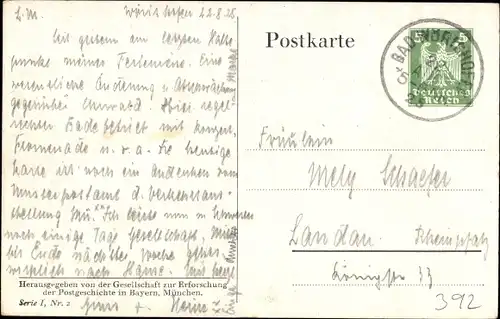 L. M. Wörishofen 22.8.25
Seit gestern am letzten Halte
punkte meiner Ferienreise. Eine
wesentliche Änderung u. Abwechslung
gegenüber Urwald. Hier regel
rechter Badebetrieb mit Konzert,
Promenade u. s. a. Die heutige
Karte ist noch ein Andenken vom
Musterpostamt d. Verkehrsaus-
stellung Mü. Ich leiste nun m Schwestern
noch einige Tage Gesellschaft,
bis Ende nächster Woche
nach Hause.
Gruss
Herausgegeben von der Gesellschaft zur Erforschung
der Postgeschichte in Bayern, München.
Serie I, Nr. 2
Postkarte
5 5
Deutsches
Reich
BAD WÖRISHOFEN
Fräulein
Mely Schaefer
Landau Rheinpfalz
Königstr 33
392